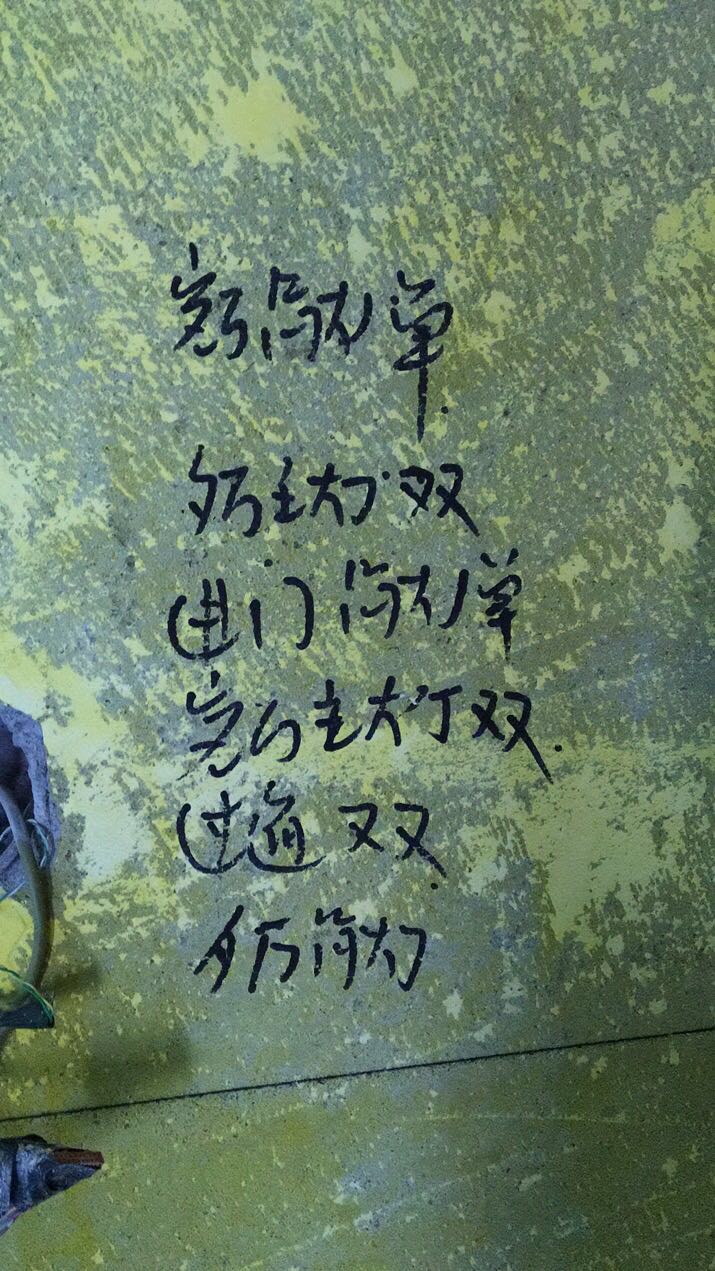 客厅筒灯单
歺厅主灯双
进门筒灯单
客厅主灯双
过道双
歺厅筒灯